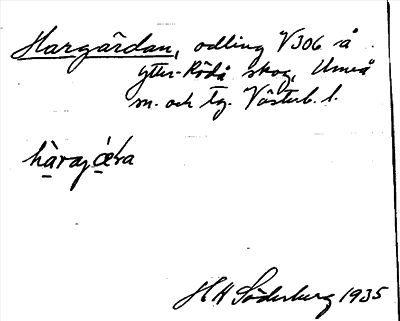 Hargärdan, odling V306 å
ytter-Rödå skog, Umeå
sn. och tg. Västerb. l.
HH Söderberg 1935